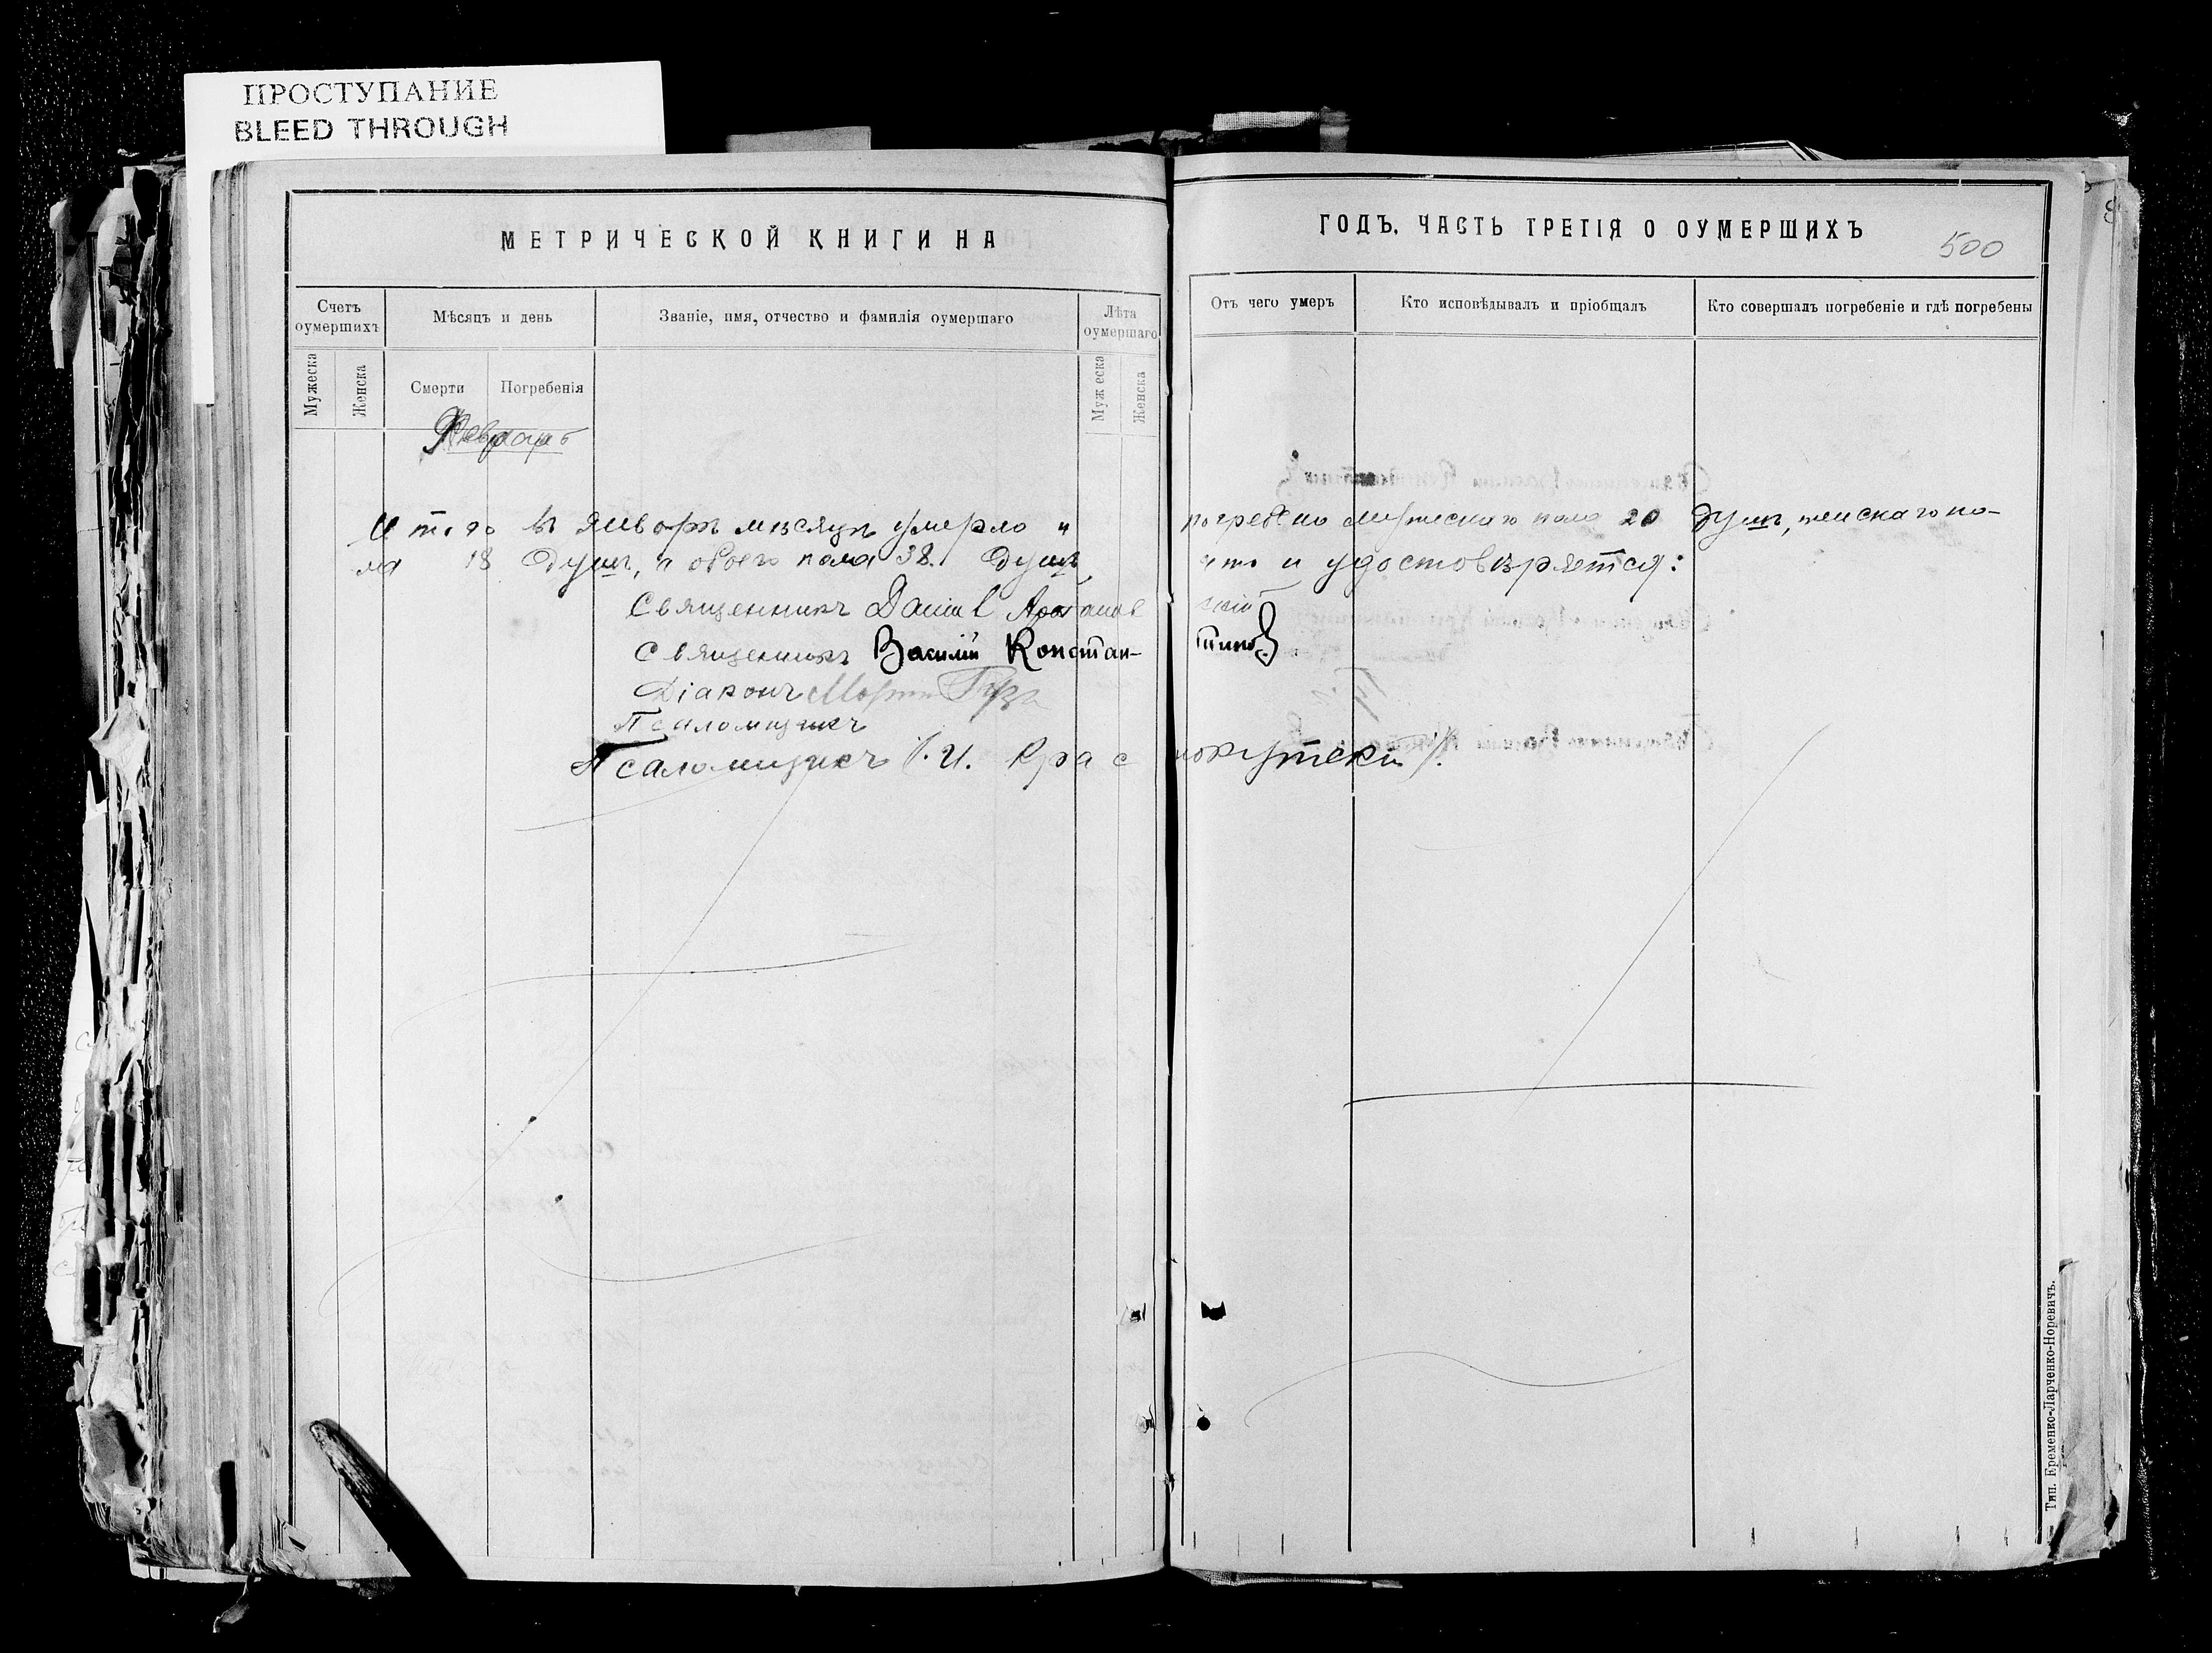 ПРОСТУПАНИЕ
BLEED THROUGH
МЕТРИЧЕСКОЙ КНИГИ НА
ГОДЪ, ЧАСТЬ ТРЕТІЯ О ОУМЕРШИХЪ
500
Счетъ оумершихъ
Мѣсяцъ и день
Званіе, имя, отчество и фамилія оумершаго
Лѣта оумершаго
Отъ чего умеръ
Кто исповѣдывалъ и пріобщалъ
Кто совершалъ погребеніе и гдѣ погребены
Мужеска
Женска
Смерти
Погребенія
Мужеска
Женска
Февраль
Итого въ январѣ мѣсяцѣ умерло и погребено мужескаго пола 20 душъ, женскаго по-
ла 18 душъ, а обоего пола 38 душъ, что и удостовѣряется:
Священникъ Даніил
Священникъ Василій Константиновъ
Діаконъ
Псаломщикъ
Псаломщикъ И. Краснокутскій
Тип. Еременко-Ларченко-Норевичъ.